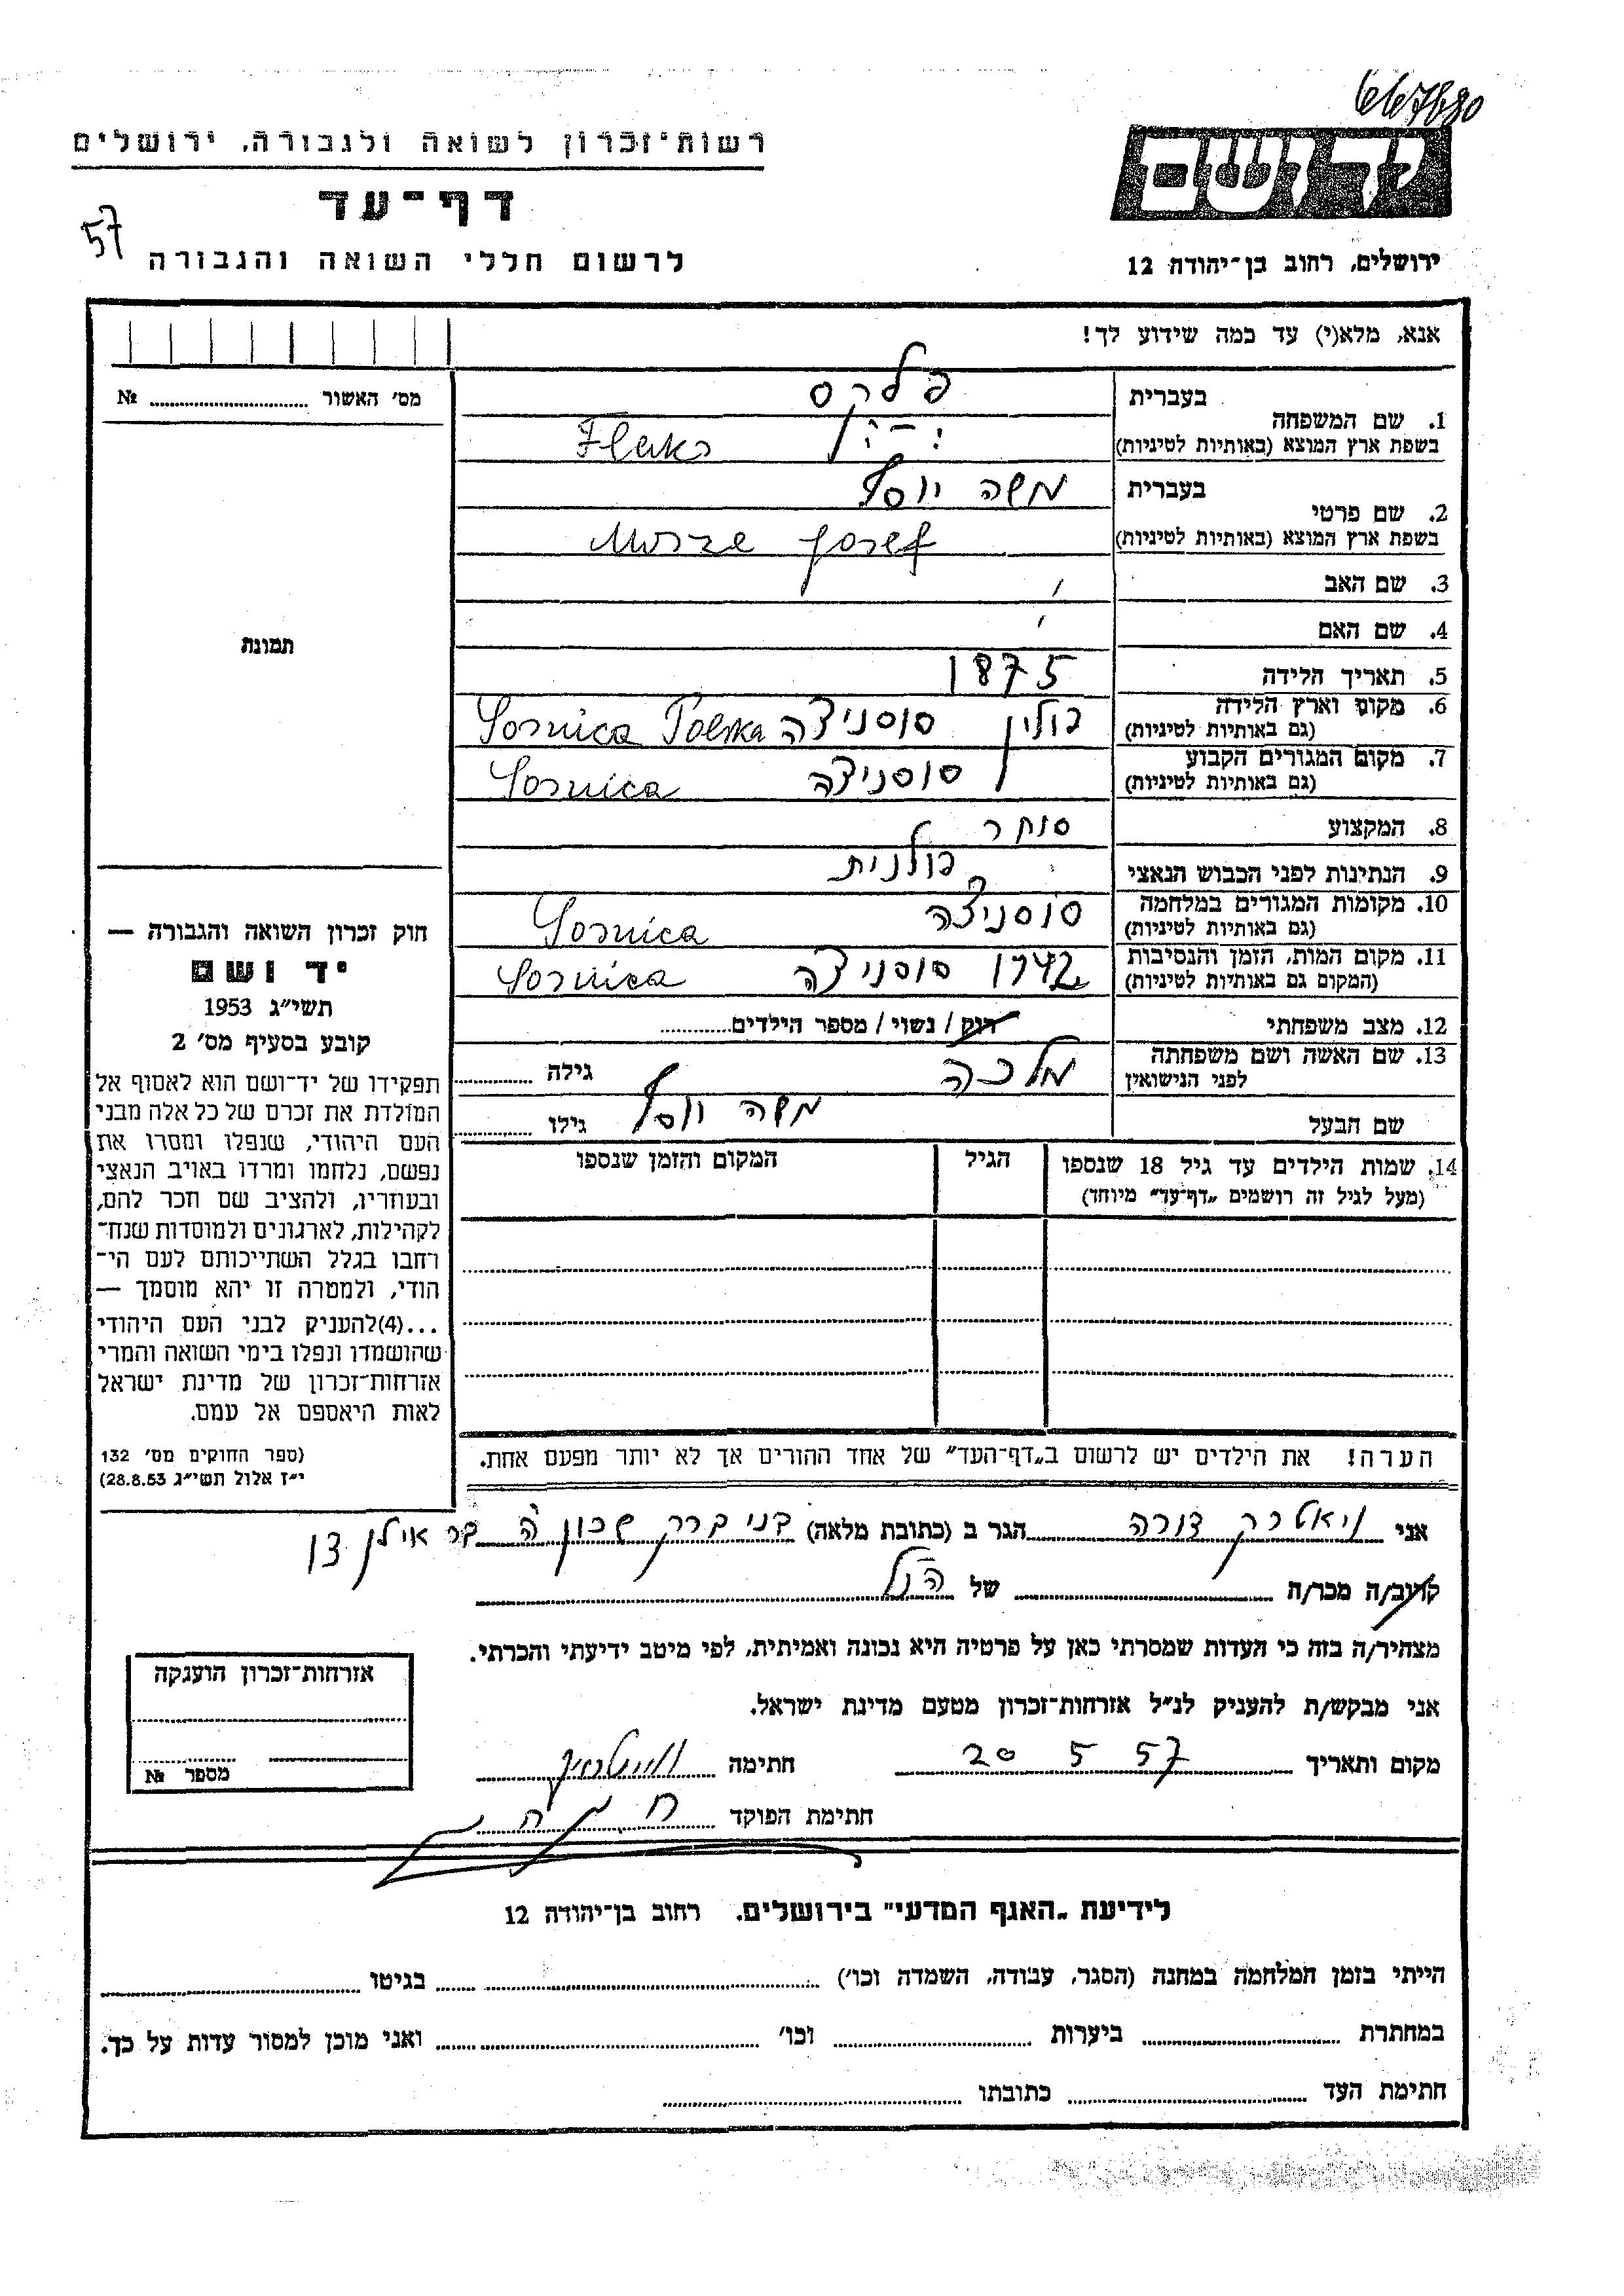 667890
רשות־זכרון לשואה ולגבורה, ירושלים
יד ושם
דף־עד
57
לרשום חללי השואה והגבורה
ירושלים, רחוב בן־יהודה 12
אנא, מלא(י) עד כמה שידוע לך!
מס׳ האשור № 
בעברית פלקס
1. שם המשפחה
בשפת ארץ המוצא (באותיות לטיניות) Flaks
בעברית משה יוסף
2. שם פרטי
בשפת ארץ המוצא (באותיות לטיניות) Josef
3. שם האב
4. שם האם
תמונת
5. תאריך הלידה 1875
6. מקום וארץ הלידה פולין סוסניצה Sosnica Polska
(גם באותיות לטיניות)
7. מקום המגורים הקבוע סוסניצה Sosnica
(גם באותיות לטיניות)
8. המקצוע סוחר
9. הנתינות לפני הכבוש הנאצי פולנית
10. מקומות המגורים במלחמה סוסניצה Sosnica
(גם באותיות לטיניות)
11. מקום המות, הזמן והנסיבות 1942 סוסניצה Sosnica
(המקום גם באותיות לטיניות)
12. מצב משפחתי רוק / נשוי / מספר הילדים
13. שם האשה ושם משפחתה מלכה גילה
לפני הנישואין
שם הבעל משה יוסף גילו
14. שמות הילדים עד גיל 18 שנספו הגיל המקום והזמן שנספו
(מעל לגיל זה רושמים „דף־עד” מיוחד)
הערה! את הילדים יש לרשום ב„דף־העד” של אחד ההורים אך לא יותר מפעם אחת.
חוק זכרון השואה והגבורה —
יד ושם
תשי״ג 1953
קובע בסעיף מס׳ 2
תפקידו של יד־ושם הוא לאסוף אל
המולדת את זכרם של כל אלה מבני
העם היהודי, שנפלו ומסרו את
נפשם, נלחמו ומרדו באויב הנאצי
ובעוזריו, ולהציב שם וזכר להם,
לקהילות, לארגונים ולמוסדות שנח־
רחבו בגלל השתייכותם לעם הי־
הודי, ולמטרה זו יהא מוסמך —
...(4)להעניק לבני העם היהודי
שהושמדו ונפלו בימי השואה והמרי
אזרחות־זכרון של מדינת ישראל
לאות היאספם אל עמם.
(ספר החוקים מס׳ 132
י״ז אלול תשי״ג 28.8.53)
אני ויאטרק דורה הגר ב (כתובת מלאה) בני ברק שכון ה בר אילן
קרוב/ה מכר/ה של הנ״ל
מצהיר/ה בזה כי העדות שמסרתי כאן על פרטיה היא נכונה ואמיתית, לפי מיטב ידיעתי והכרתי.
אני מבקש/ת להעניק לנ״ל אזרחות־זכרון מטעם מדינת ישראל.
מקום ותאריך 20 5 57 חתימה
חתימת הפוקד
אזרחות־זכרון הוענקה
מספר №
לידיעת „האגף המדעי” בירושלים. רחוב בן־יהודה 12
הייתי בזמן המלחמה במחנה (הסגר, עבודה, השמדה וכו׳) בגיטו
במחתרת ביערות וכו׳ ואני מוכן למסור עדות על כך.
חתימת העד כתובתו